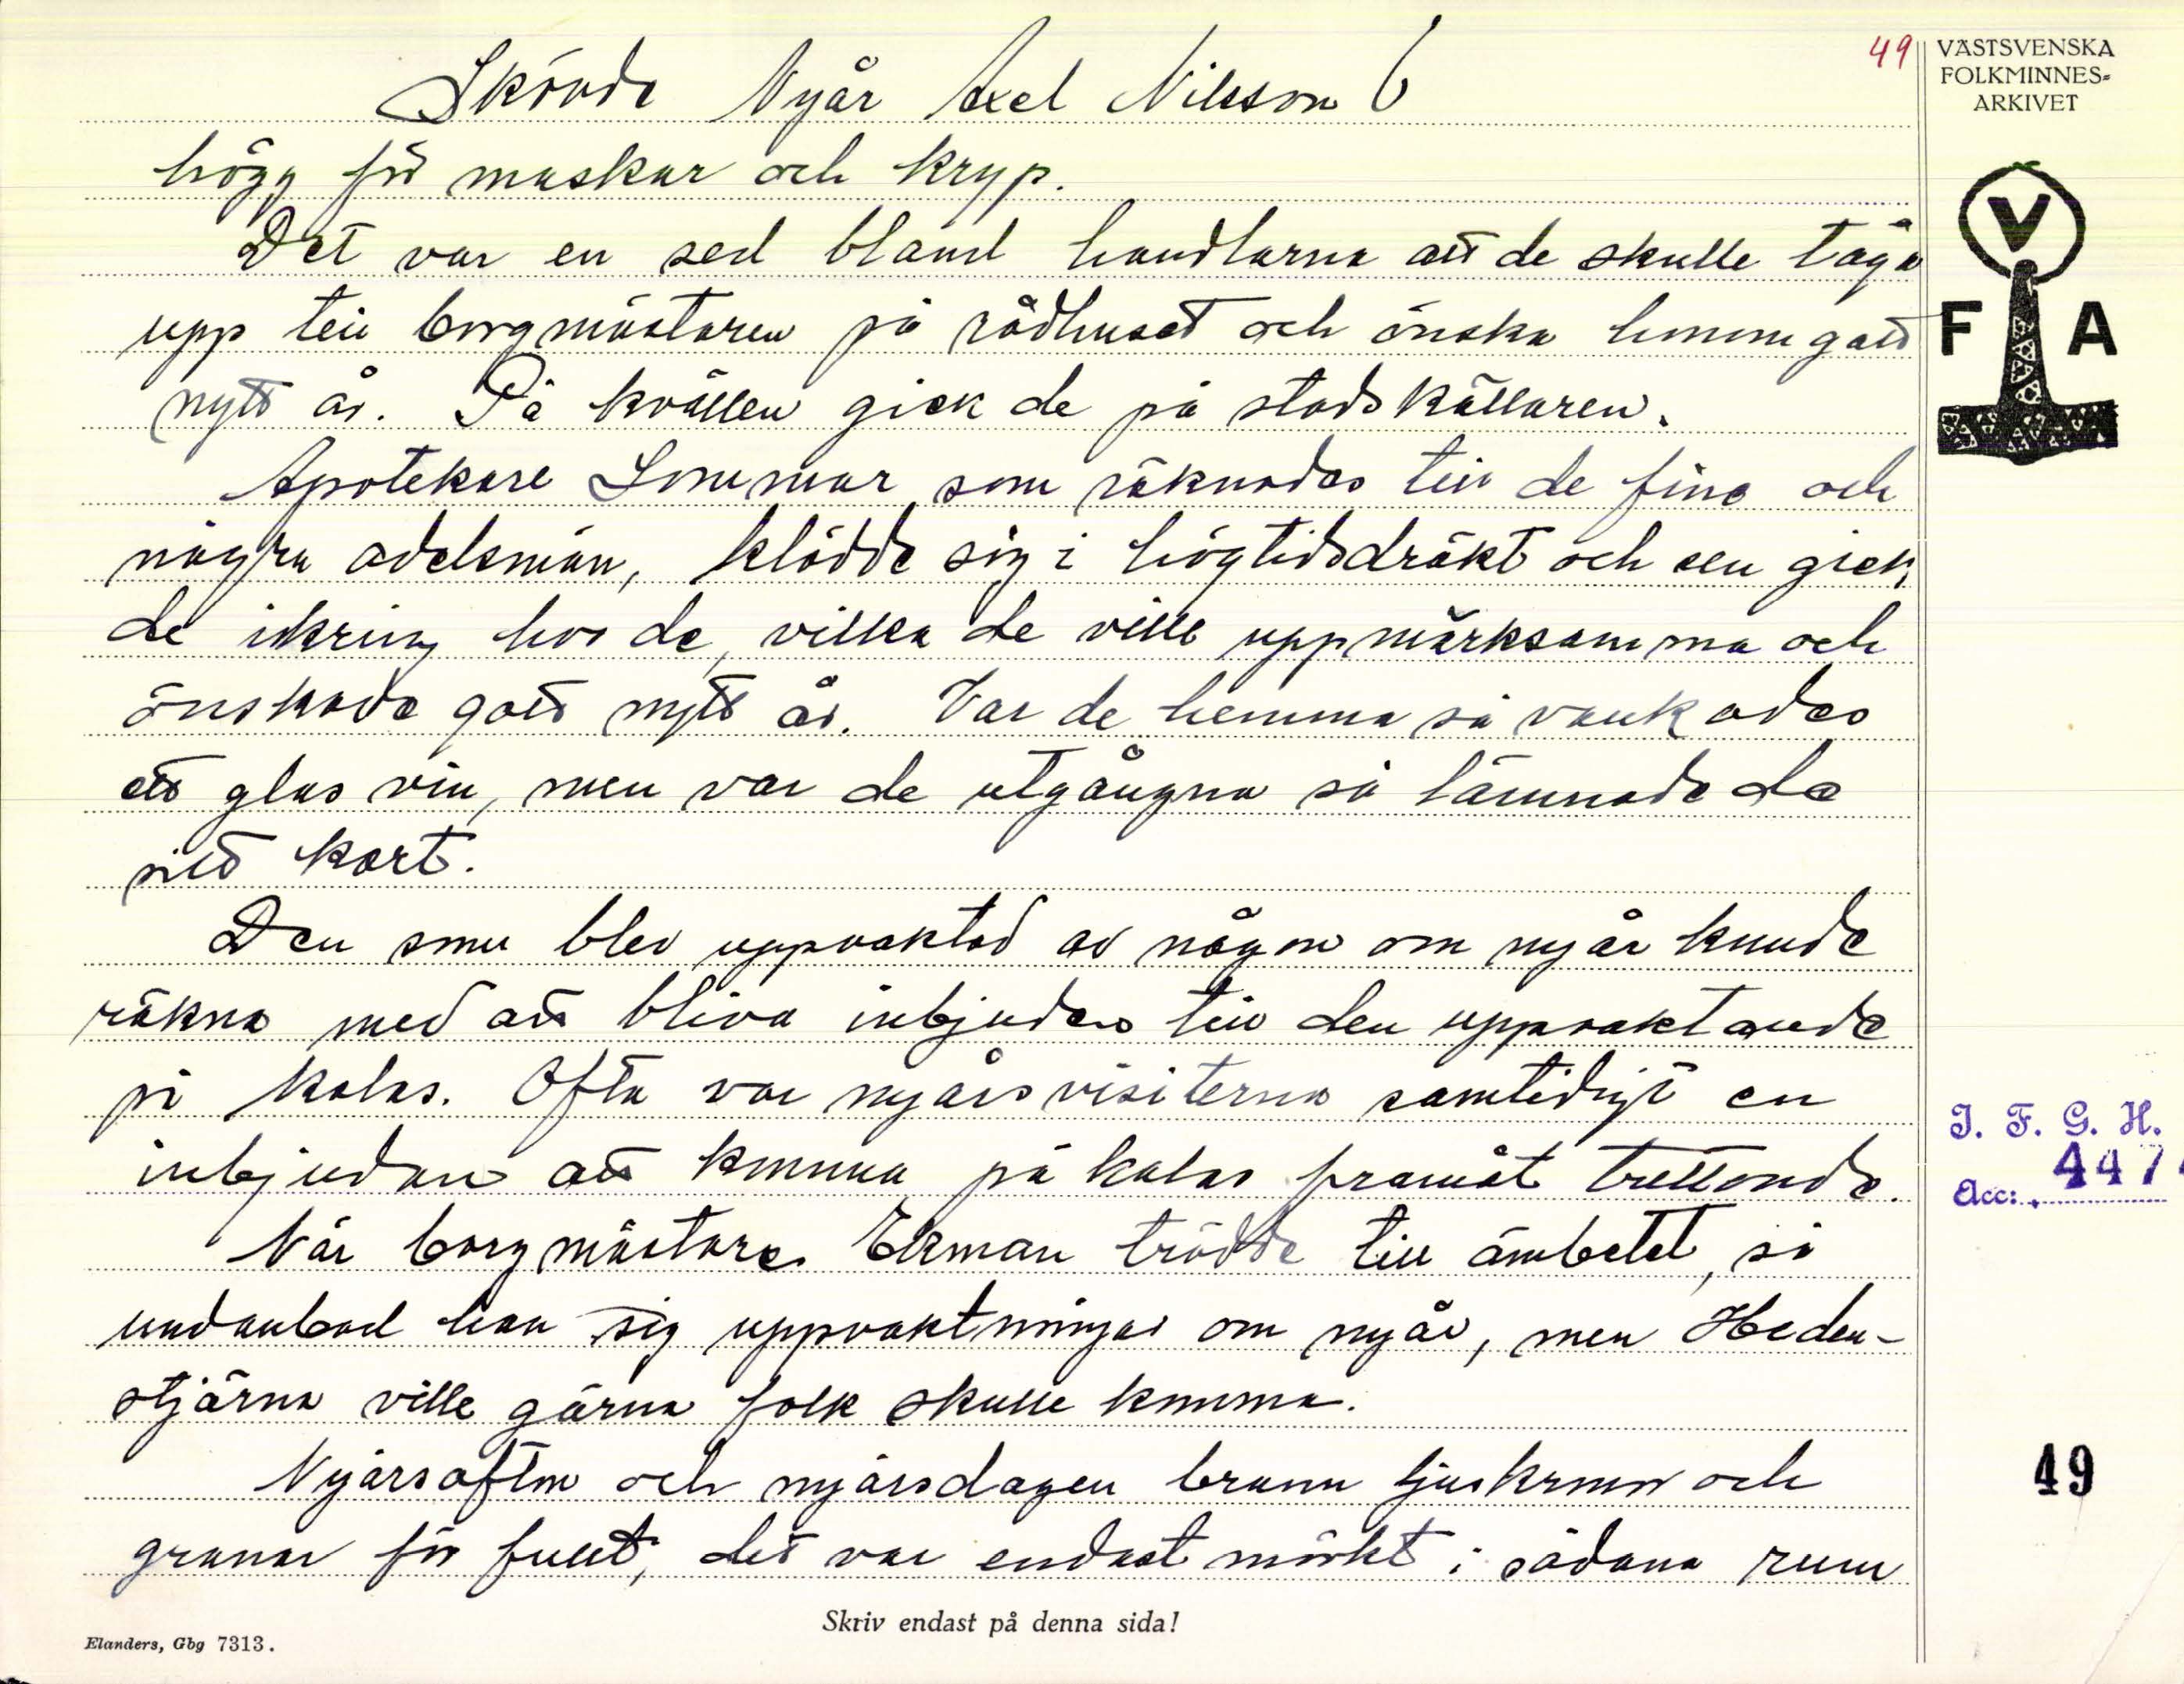 Skövde Nyår Axel Nilsson 6
49
VÄSTSVENSKA
FOLKMINNES-
ARKIVET
högg för maskar och kryp.
Det var en sed bland handlarna att de skulle tåga
upp till borgmästaren på rådhuset och önska honom gott
nytt år. På kvällen gick de på stadskällaren.
V
F A
Apotekare Sommar som räknades till de fina och
några adelsmän, klädde sig i högtidsdräkt och sen gick
de ikring hos de, vilka de ville uppmärksamma och
önskade gott nytt år. Var de hemma så vankades
ett glas vin, men var de utgångna så lämnade de
sitt kort.
Den som blev uppvaktad av någon om nyår kunde
räkna med att bliva inbjuden till den uppvaktande
på kalas. Ofta var nyårsvisiterna samtidigt en
inbjudan att komma på kalas framåt trettonde.
När borgmästare Ekman trädde till ämbetet, så
undanbad han sig uppvaktningar om nyår, men Heden-
stjärna ville gärna folk skulle komma.
Nyårsafton och nyårsdagen brann ljuskronor och
granar för fullt, det var endast mörkt i sådana rum
I. F. G. H.
Acc: 447
49
Skriv endast på denna sida!
Elanders, Gbg 7313.